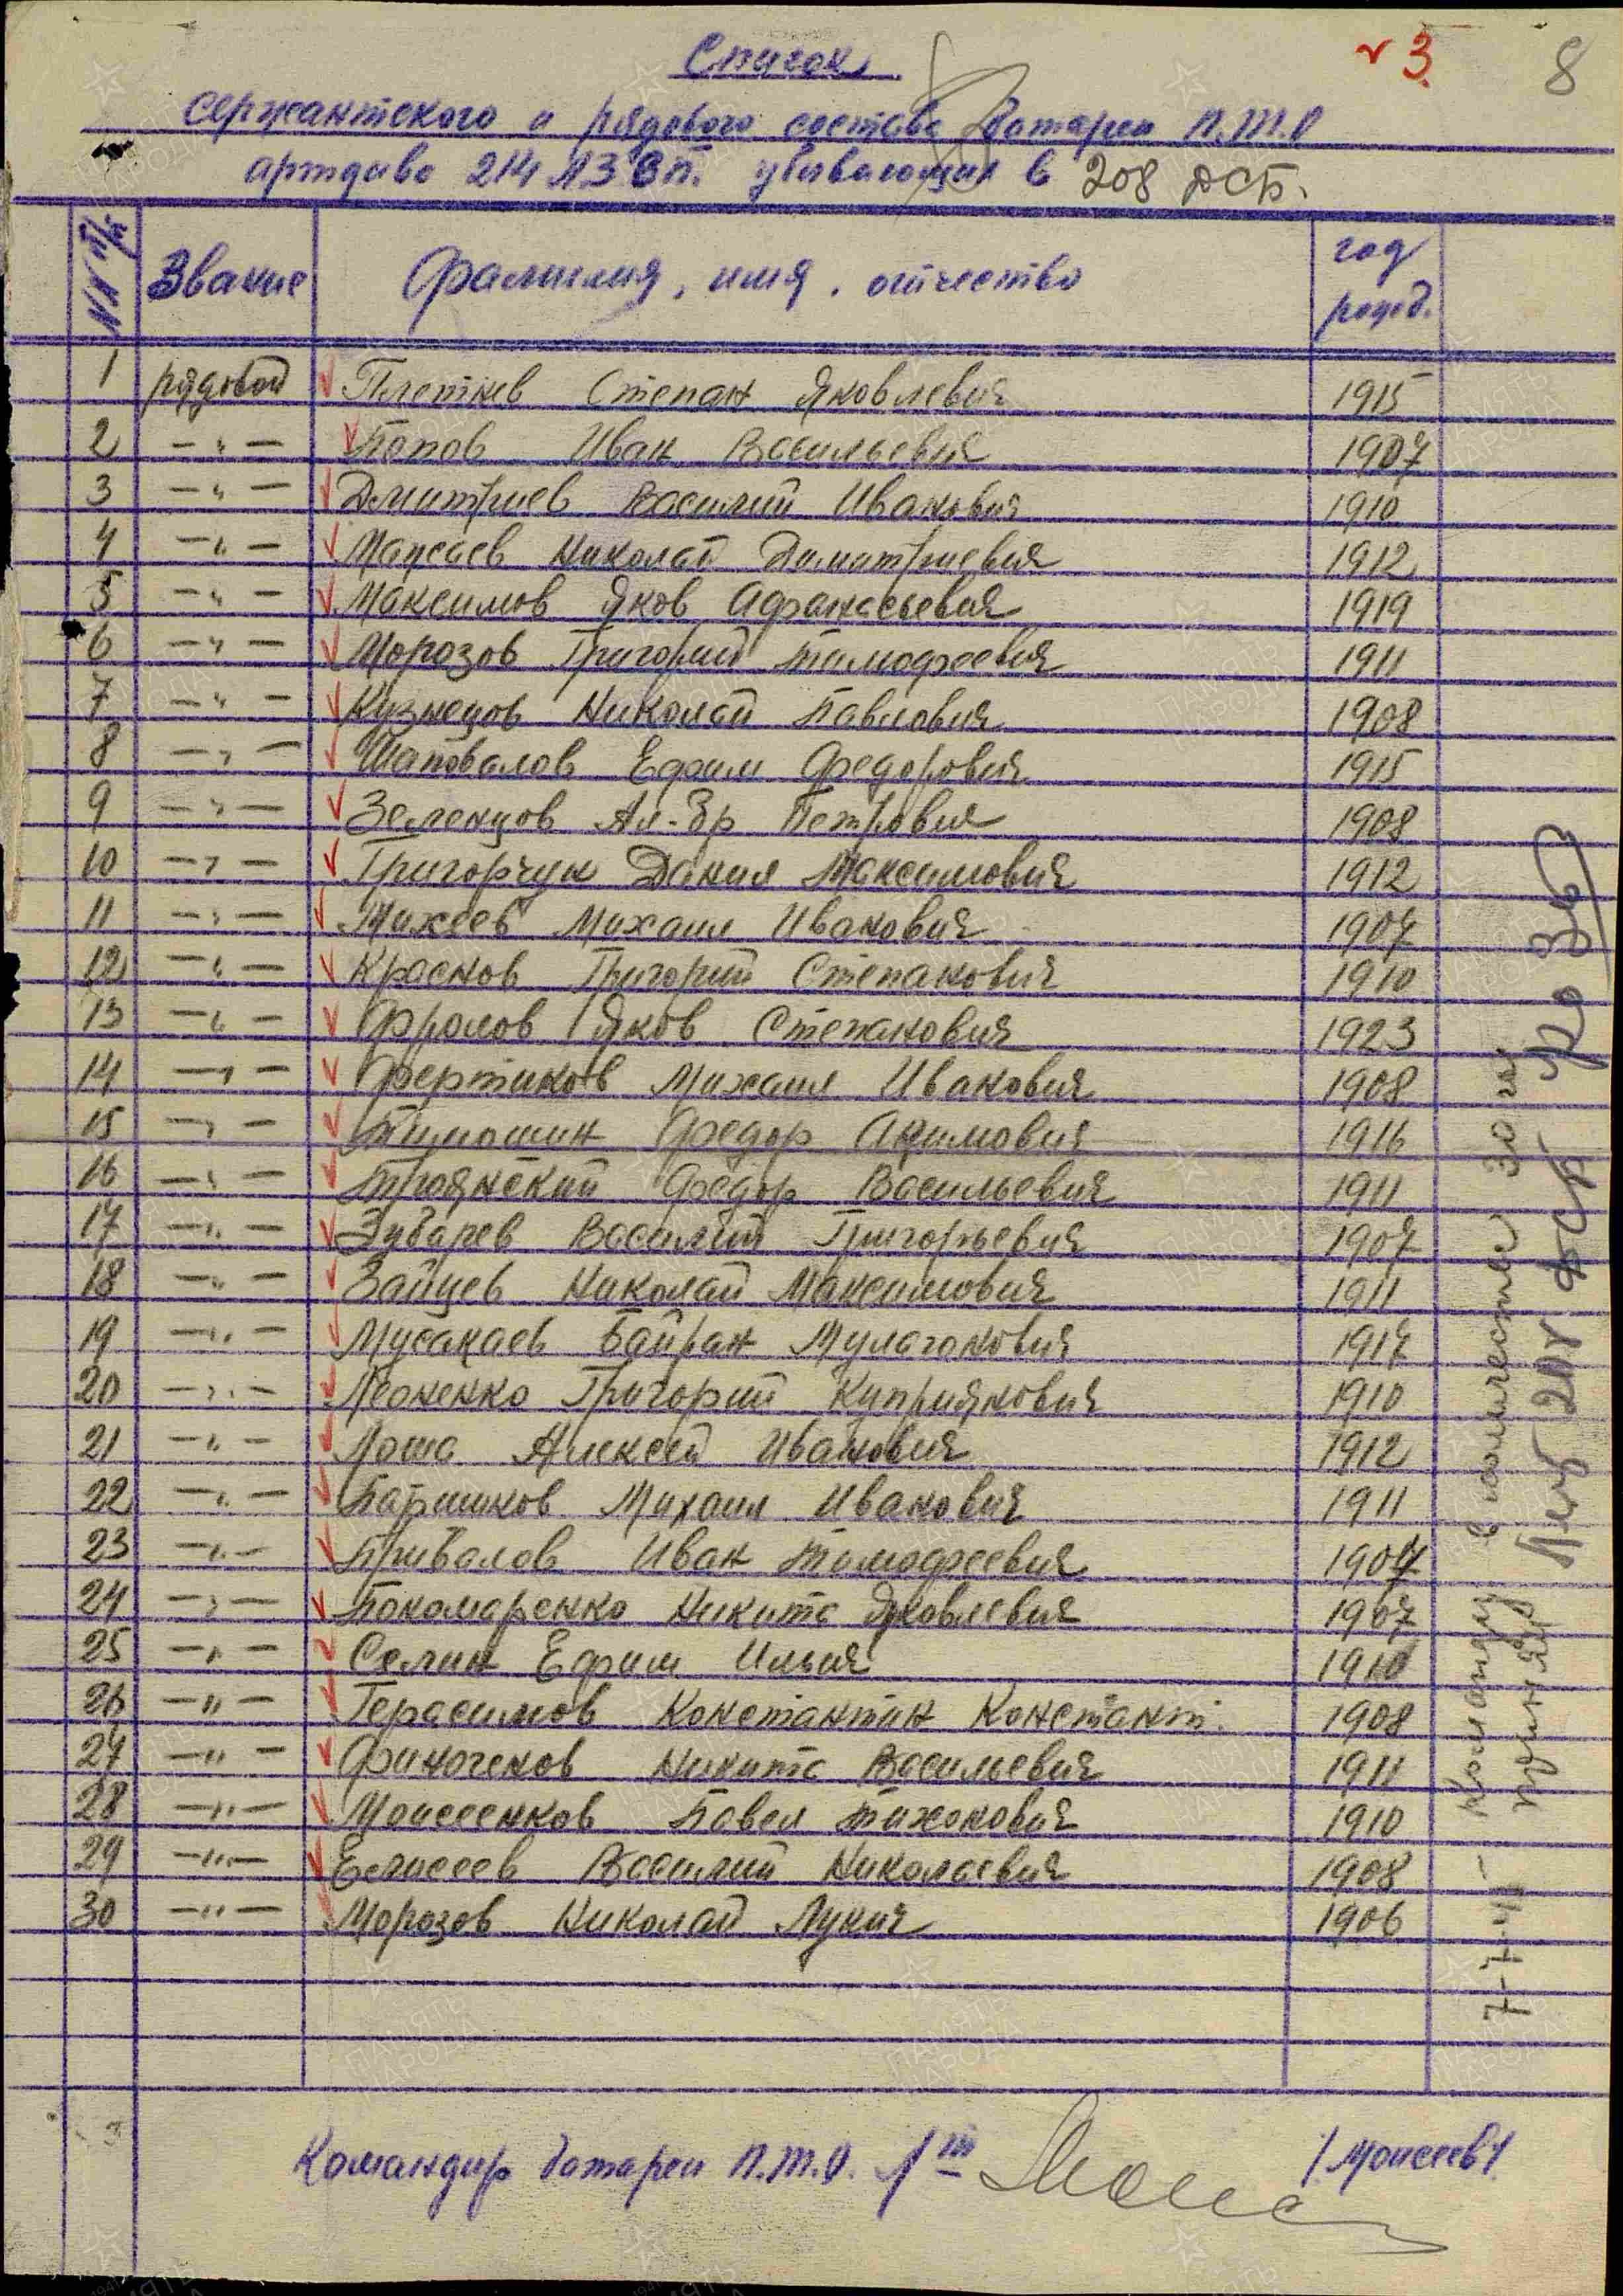 Список
✓ 3.
8
сержантского и рядового состава батареи П.Т.О
артдива 214 АЗСП. убывающих в 208 ДСБ.
№№ п/п Звание Фамилия, имя, отчество год рожд.
1 рядовой Плетнев Степан Яковлевич 1915
2 —"— Попов Иван Васильевич 1907
3 —"— Дмитриев Василий Иванович 1910
4 —"— Николай Диматриевич 1912
5 —"— Максимов Яков Афанасьевич 1919
6 —"— Морозов Григорий Тимофеевич 1911
7 —"— Кузнецов Николай Павлович 1908
8 —"— Шаповалов Ефим Федорович 1915
9 —"— Зеленцов Ал-др Петрович 1908
10 —"— Григорчук Данил Максимович 1912
11 —"— Михеев Михаил Иванович 1907
12 —"— Краснов Григорий Степанович 1910
13 —"— Фролов Яков Степанович 1923
14 —"— Фертиков Михаил Иванович 1908
15 —"— Тимошин Федор Акимович 1916
16 —"— Троянский Федор Васильевич 1911
17 —"— Зубарев Василий Григорьевич 1907
18 —"— Зайцев Николай Максимович 1911
19 —"— Мусакаев Байран Мулаганович 1917
20 —"— Леоненко Григорий Куприянович 1910
21 —"— Лоша Алексей Иванович 1912
22 —"— Паришков Михаил Иванович 1911
23 —"— Привалов Иван Тимофеевич 1907
24 —"— Пономаренко Никита Яковлевич 1907
25 —"— Селин Ефим Ильич 1910
26 —"— Герасимов Константин Констант. 1908
27 —"— Финогенов Никита Васильевич 1911
28 —"— Моисеенков Павел Тихонович 1910
29 —"— Елисеев Василий Николаевич 1908
30 —"— Морозов Николай Лукич 1906
7-7-44 - команду в количестве 30 чел
принял
Командир батареи П.Т.О. /Моисеев/